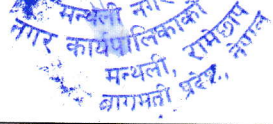 मन्थली नगर
नगर कार्यपालिकाको
मन्थली, रामेछाप
बागमती प्रदेश, नेपाल